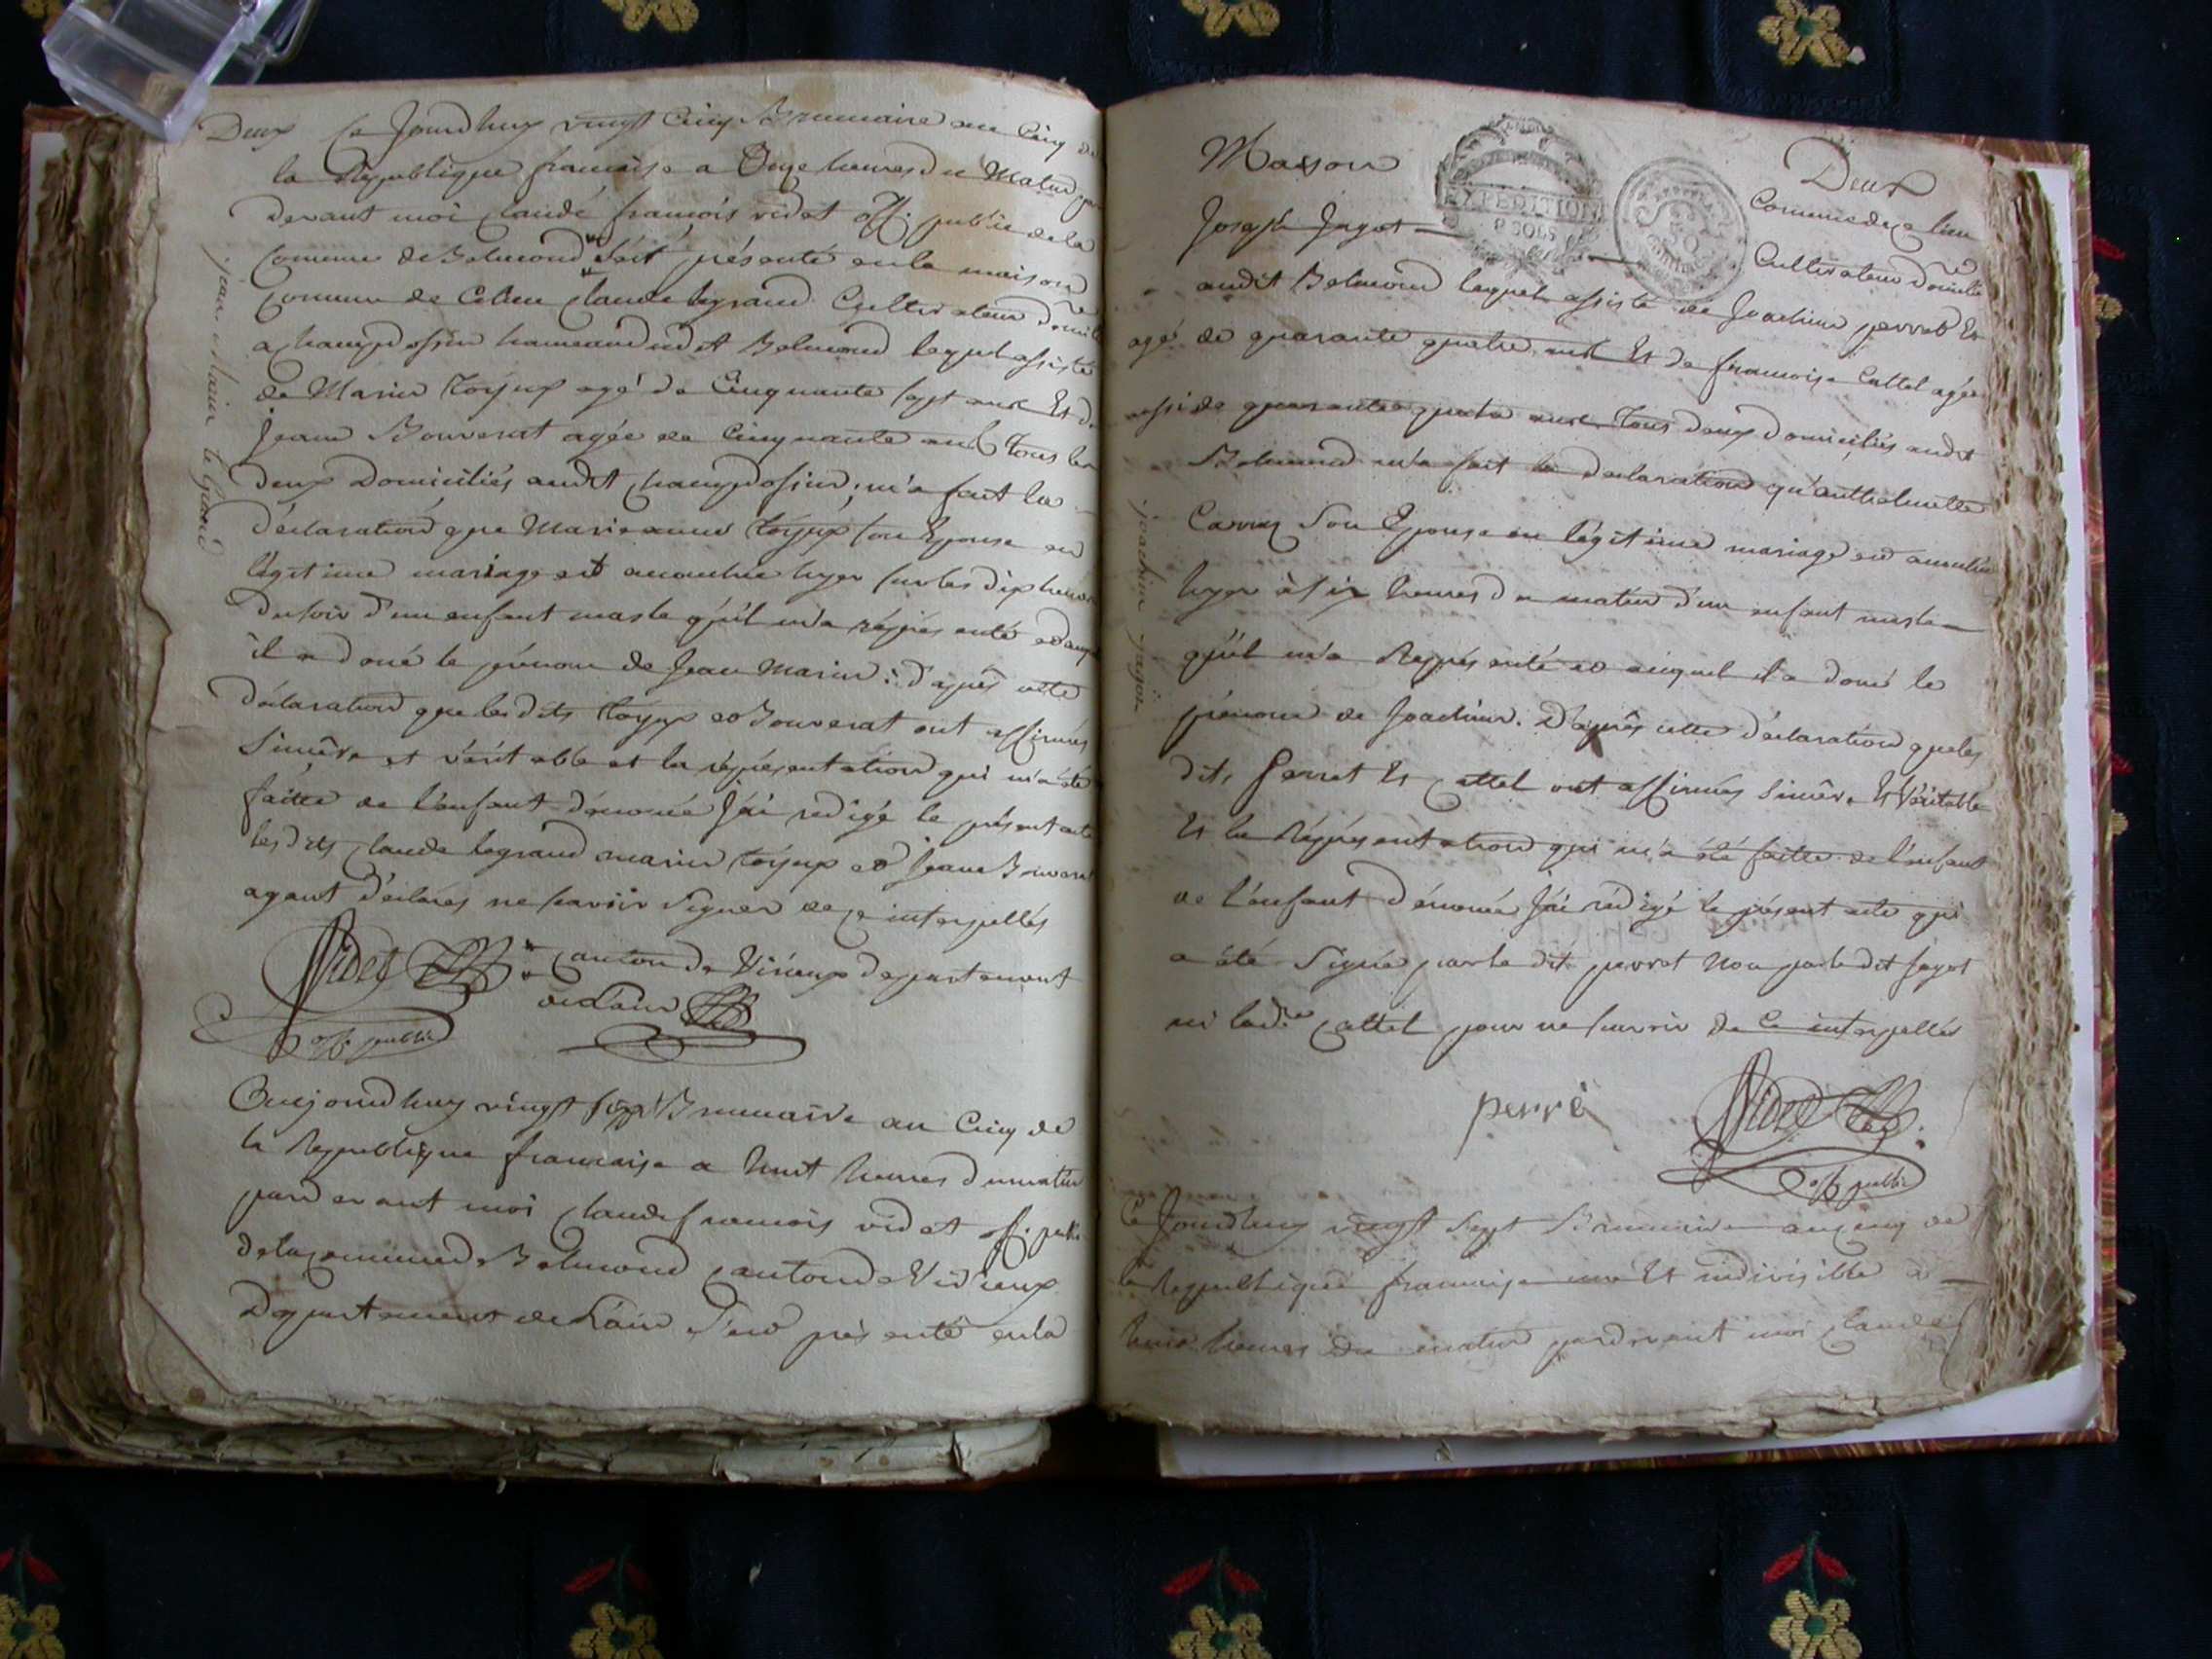 Deux Ce Jourdhuy vingt Cinq Brumaire an Cinq de
la Republique francoise a Onze heures du Matin par
devant moi claude francois videt off. public de la
comune de Belmond s'est présenté en la maison
comune de Ce lieu claude legrand Cultivateur domicilié
a champdossin hameau dudit Belmond lequel assisté
de Marin toyeux agé de Cinquante sept ans Et de
jeanne Bouverat agée de Cinquante ans tous les
deux Domiciliés audit champdossin; m'a fait la
déclaration que Marianne toyeux son Epouse en
légitime mariage est accouchée hyer sur les dix heures
du soir d'un enfant masle qu'il m'a réprésenté et auquel
il a doné le prénom de Jean Marin: d'après cette
déclaration que lesdits toyeux et Bouverat ont affirmés
Sincère et véritable et la réprésentation qui m'a été
faitte de l'enfant dénomé J'ai redigé le présent acte
lesdits claude legrand marin toyeux et Jeanne Bouverat
ayant déclarés ne savoir signer de ce interpellés
Videt
canton de Virieux departement
de Lain
off. public
jean Marin le Grand
Cejourdhuy vingt six Brumaire an Cinq de
la Republique francaise a huit heures du matin
pardevant moi claude francois videt off. public
de la comune de Belmond canton de Virieux
Departement de Lain s'est présenté en la
Maison
Deux
comune de ce lieu
EXPEDITION
9 SOLS
50
Joseph Jagot
Cultivateur domicilié
audit Belmond lequel assisté de Joachim perret Et
agé de quarante quatre ans Et de francoise Cattel agée
aussi de quarante quatre ans tous deux domiciliés audit
Belmond m'a fait la declaration qu'anthelmette
son Epouse en légitime mariage est accouchée
hyer à six heures du matin d'un enfant masle
qu'il m'a Représenté et auquel il a doné le
prénom de Joachim. D'après cette déclaration que les
dits perret Et cattel ont affirmés Sincère Et Véritable
Et la Réprésentation qui m'a été faitte de l'enfant
de l'enfant dénomé J'ai rédigé le présent acte qui
a été Signé par le dit perret Non par le dit Jagot
ni lad.e cattel pour ne savoir de Ce interpellés
perré
Videt
off. public
joachim jagot
Ce Jourdhuy vingt Sept Brumaire an cinq de
la Republique francaise une Et indivisible à
huit heures du matin pardevant moi claude